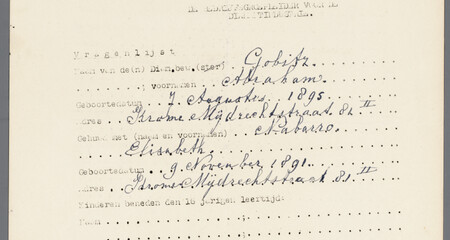 Vragenlijst
Naam van de(n) Dienbw.(ster) Gobitz
, , voornamen Abraham.
Geboortedatum 7 Augustus 1895
Adres Krome Mijdrechtstraat 81 II
Gehuwd met (naam en voornamen) Nabarro
Elisabeth
Geboortedatum 9 November 1891.
Adres Krome Mijdrechtstraat 81 II
Kinderen beneden den 16 jarigen leertijd:
Naam